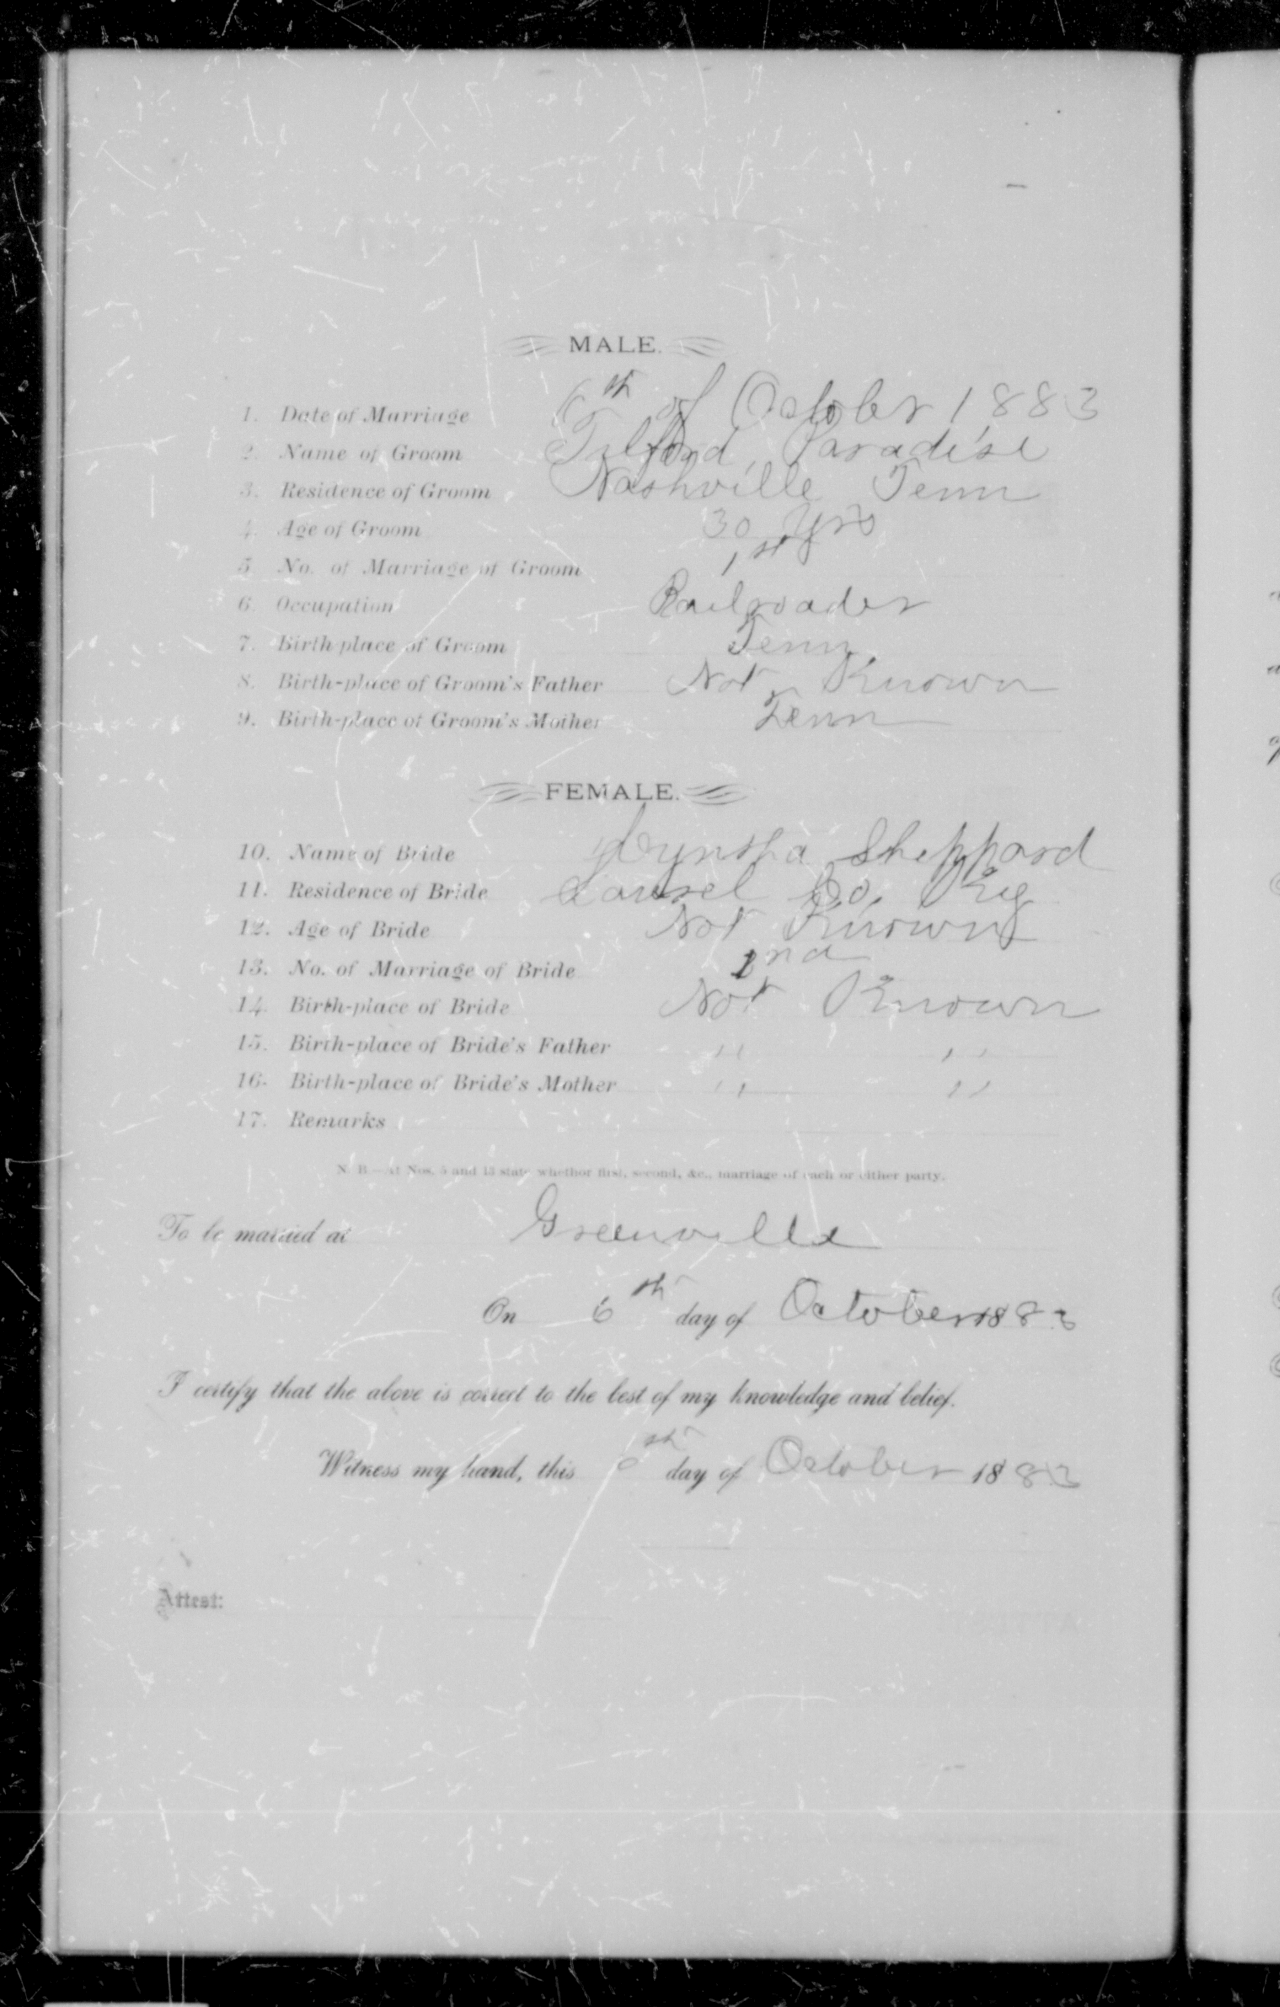 MALE.
1. Date of Marriage 6th of October 1883
2. Name of Groom Telford Paradise
3. Residence of Groom Nashville Tenn
4. Age of Groom 30 Yrs
5. No. of Marriage of Groom 1st
6. Occupation Railroader
7. Birth-place of Groom Tenn
8. Birth-place of Groom's Father Not Known
9. Birth-place of Groom's Mother Tenn
FEMALE.
10. Name of Bride Sheppard
11. Residence of Bride Laurel Co. Ky
12. Age of Bride Not Known
13. No. of Marriage of Bride 2nd
14. Birth-place of Bride Not Known
15. Birth-place of Bride's Father " "
16. Birth-place of Bride's Mother " "
17. Remarks
N. B.—At Nos. 5 and 13 state whether first, second, &c., marriage of each or either party.
To be married at Greenville
On 6th day of October 1883
I certify that the above is correct to the best of my knowledge and belief.
Witness my hand, this 6th day of October 1883
Attest: